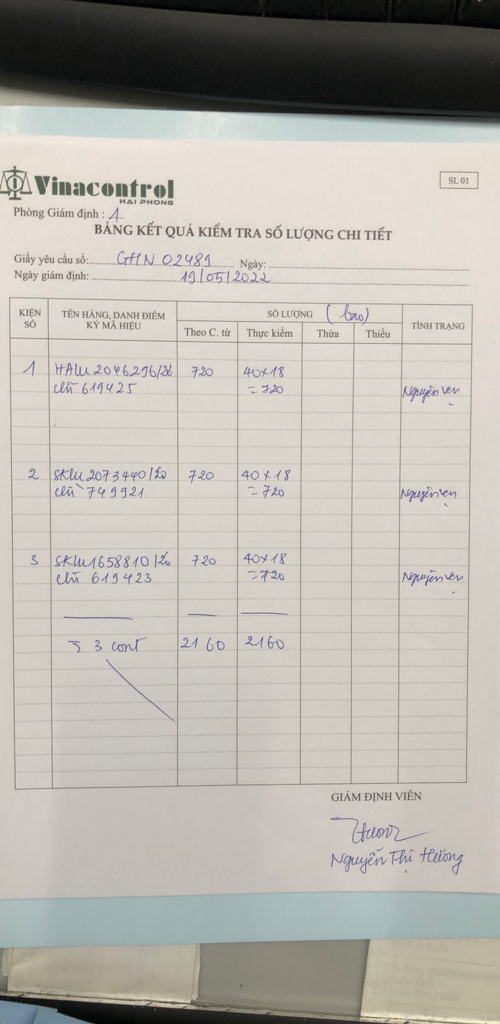 Vinacontrol
HAI PHONG
SL 01
Phòng Giám định : 1
BẢNG KẾT QUẢ KIỂM TRA SỐ LƯỢNG CHI TIẾT
Giấy yêu cầu số: GHN 02489 Ngày:
Ngày giám định: 19/05/2022
KIỆN SỐ TÊN HÀNG, DANH ĐIỂM KÝ MÃ HIỆU SỐ LƯỢNG (bao) TÌNH TRẠNG
Theo C. từ Thực kiểm Thừa Thiếu
1 HALU 2046296/20 720 40x18
chì 619425 = 720 Nguyên vẹn
2 SKLU 2073440/20 720 40x18
chì 749921 = 720 Nguyên vẹn
3 SKLU 1658810/20 720 40x18
chì 619423 = 720 Nguyên vẹn
Σ 3 cont 2160 2160
GIÁM ĐỊNH VIÊN
Nguyễn Thị Hương